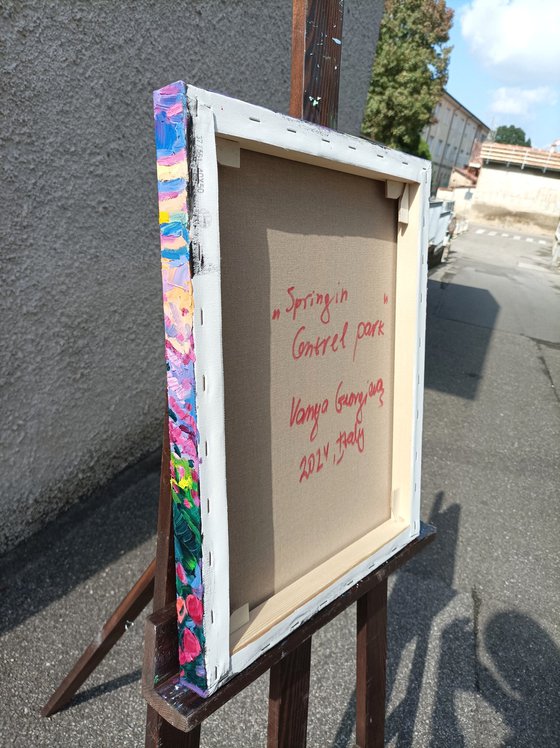 „Spring in "
Centrel park
Vanya Georgieva,
2024, Italy